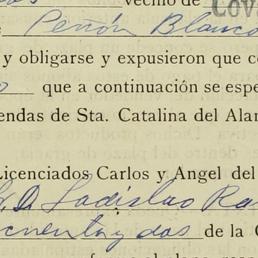 vecino de
Peñón Blanco
y obligarse y expusieron que c
que a continuación se espe
endas de Sta. Catalina del Ala
Licenciados Carlos y Angel del
Sr. D. Ladislao Ra
cuenta y dos de la C